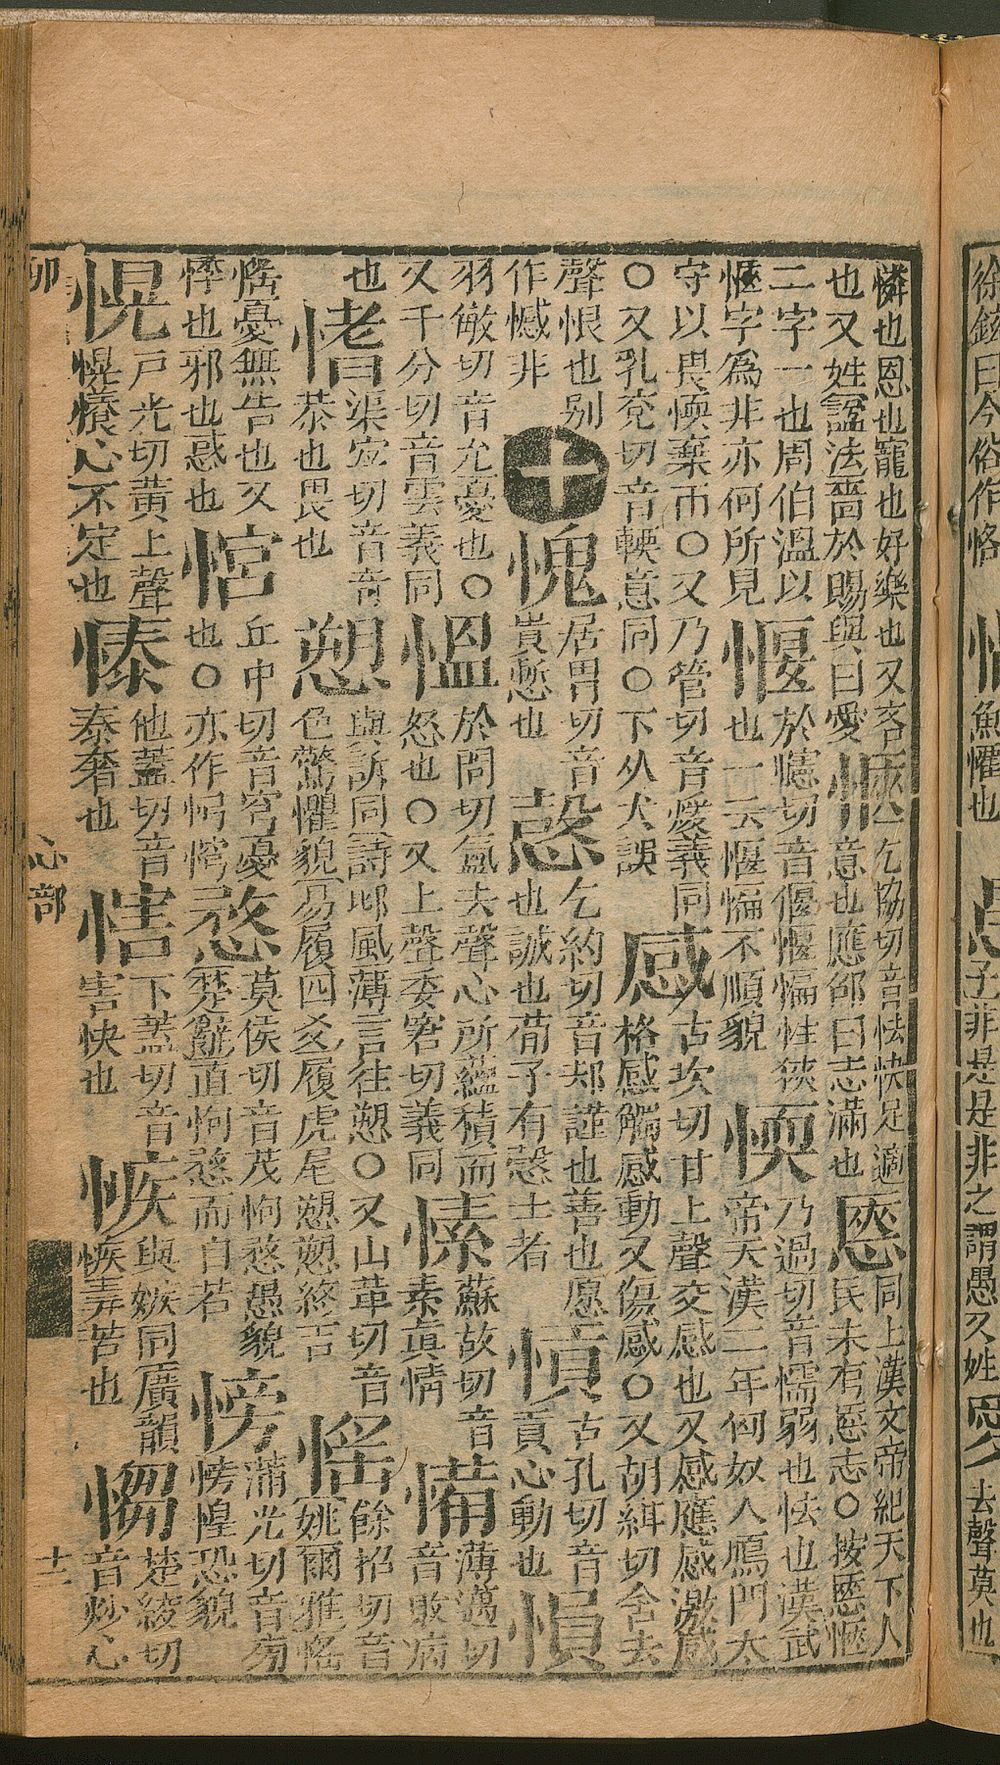 徐鉉曰今俗作恪
懼也
子非是是非之謂愚又姓
愛
去聲莫也
憐也恩也寵也好樂也又吝
也又姓諡法嗇於賜與曰愛
乞協切音怯快足適
意也應邵曰志滿也
㥦
同上漢文帝紀天下人
民未有㥦志○按㥦愜
二字一也周伯溫以
愜字爲非亦何所見
愝
於憶切音偃愝愊性狹
也一云愝愊不順貌
愞
乃過切音懦弱也怯也漢武
帝天漢二年匈奴人鴈門太
守以畏愞棄市○又乃管切音煖義同
○又乳兗切音輭意同○下从犬誤
感
古坎切甘上聲交感也又感應感激感
格感觸感動又傷感○又胡紺切含去
聲恨也别
作憾非
十
愧
居胃切音
貴慙也
愨
乞約切音却謹也善也愿
也誠也荀子有愨士者
愩
古孔切音
貢心動也
愪
羽敏切音允憂也○
又千分切音雲義同
慍
於問切氳去聲心所蘊積而
怒也○又上聲委窘切義同
愫
蘇故切音
素眞情
薄邁切
音敗病
也
愭
渠宜切音奇
恭也畏也
愬
與訴同詩邶風薄言往愬○又山革切音
色驚懼貌易履四爻履虎尾愬愬終吉
愮
餘招切音
姚爾雅愮
愮憂無告也又
悸也邪也惑也
丘中切音穹憂
也○亦作
愗
莫侯切音茂怐愗愚貌
楚辭直怐愗而自若
蒲光切音旁
惶恐貌
愰
戶光切黃上聲
愰懩心不定也
他蓋切音
泰奢也
下蓋切音
害快也
愱
與嫉同廣韻
愱毒苦也
㥮
楚綾切
音炒心
卯
心部
十二